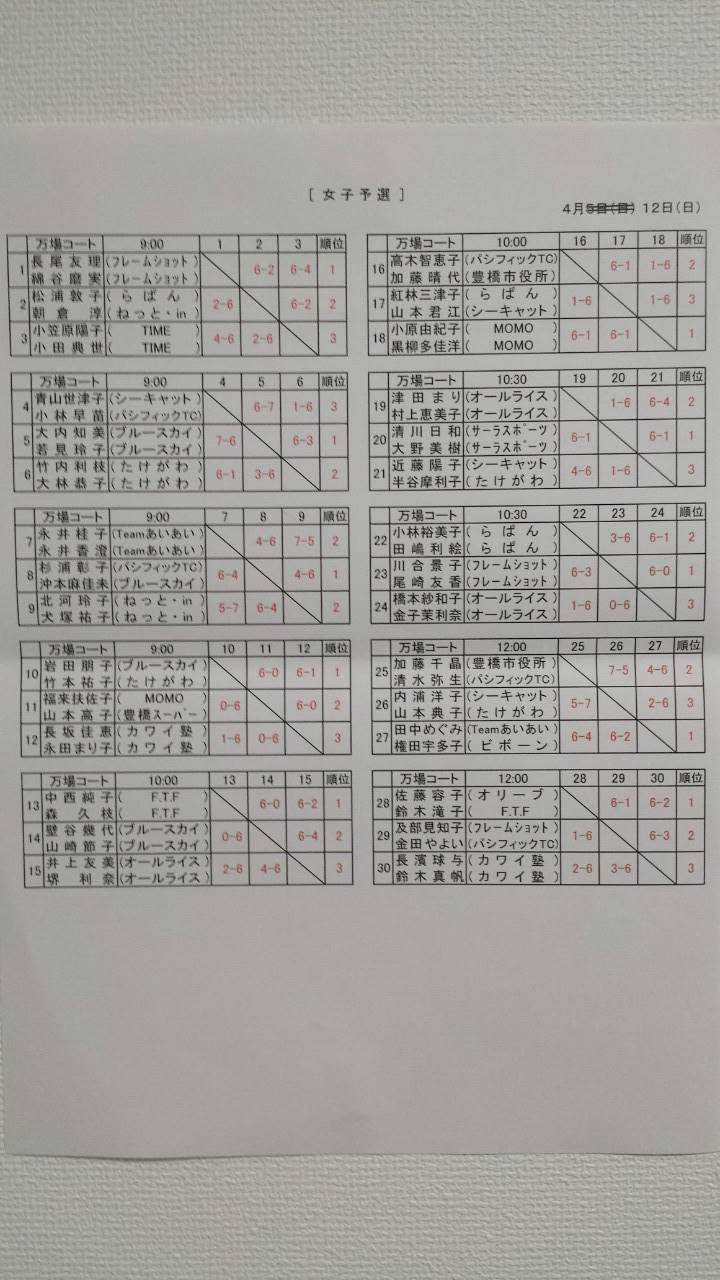 [ 女 子 予 選 ]
4月5日(日) 12日(日)
万場コート 9:00 1 2 3 順位
1 長尾友理(フレームショット) 6-2 6-4 1
綿谷磨実(フレームショット)
2 松浦敦子(らぱん) 2-6 6-2 2
朝倉淳(ねっと・in)
3 小笠原陽子(TIME) 4-6 2-6 3
小田典世(TIME)
万場コート 9:00 4 5 6 順位
4 青山世津子(シーキャット) 6-7 1-6 3
小林早苗(パシフィックTC)
5 大内知美(ブルースカイ) 7-6 6-3 1
若見玲子(ブルースカイ)
6 竹内利枝(たけがわ) 6-1 3-6 2
大林恭子(たけがわ)
万場コート 9:00 7 8 9 順位
7 永井桂子(Teamあいあい) 4-6 7-5 2
永井香澄(Teamあいあい)
8 杉浦彰子(パシフィックTC) 6-4 4-6 1
沖本麻佳未(ブルースカイ)
9 北河玲子(ねっと・in) 5-7 6-4 2
犬塚祐子(ねっと・in)
万場コート 9:00 10 11 12 順位
10 岩田朋子(ブルースカイ) 6-0 6-1 1
竹本祐子(たけがわ)
11 福来扶佐子(MOMO) 0-6 6-0 2
山本高子(豊橋スーパー)
12 長坂佳恵(カワイ塾) 1-6 0-6 3
永田まり子(カワイ塾)
万場コート 10:00 13 14 15 順位
13 中西純子(F.T.F) 6-0 6-2 1
森久枝(F.T.F)
14 壁谷幾代(ブルースカイ) 0-6 6-4 2
山崎節子(ブルースカイ)
15 井上友美(オールライス) 2-6 4-6 3
堺利奈(オールライス)
万場コート 10:00 16 17 18 順位
16 高木智恵子(パシフィックTC) 6-1 1-6 2
加藤晴代(豊橋市役所)
17 紅林三津子(らぱん) 1-6 1-6 3
山本君江(シーキャット)
18 小原由紀子(MOMO) 6-1 6-1 1
黒柳多佳洋(MOMO)
万場コート 10:30 19 20 21 順位
19 津田まり(オールライス) 1-6 6-4 2
村上恵美子(オールライス)
20 清川日和(サーラスポーツ) 6-1 6-1 1
大野美樹(サーラスポーツ)
21 近藤陽子(シーキャット) 4-6 1-6 3
半谷摩利子(たけがわ)
万場コート 10:30 22 23 24 順位
22 小林裕美子(らぱん) 3-6 6-1 2
田嶋利絵(らぱん)
23 川合景子(フレームショット) 6-3 6-0 1
尾崎友香(フレームショット)
24 橋本紗和子(オールライス) 1-6 0-6 3
金子茉利奈(オールライス)
万場コート 12:00 25 26 27 順位
25 加藤千晶(豊橋市役所) 7-5 4-6 2
清水弥生(パシフィックTC)
26 内浦洋子(シーキャット) 5-7 2-6 3
山本典子(たけがわ)
27 田中めぐみ(Teamあいあい) 6-4 6-2 1
権田宇多子(ビボーン)
万場コート 12:00 28 29 30 順位
28 佐藤容子(オリーブ) 6-1 6-2 1
鈴木滝子(F.T.F)
29 及部見知子(フレームショット) 1-6 6-3 2
金田やよい(パシフィックTC)
30 長濱球与(カワイ塾) 2-6 3-6 3
鈴木真帆(カワイ塾)